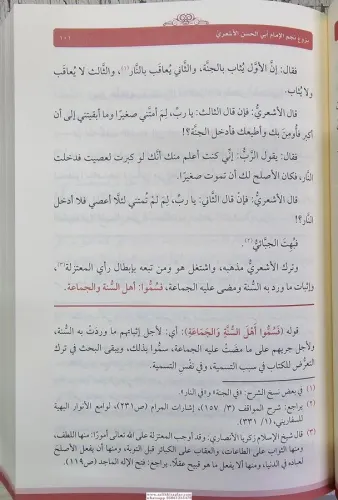 بزوغ نجم الإمام أبي الحسن الأشعري
١٠١
فقال: إنَّ الأوَّل يُثاب بالجنَّة، والثاني يُعاقَب بالنَّار(١)، والثالث لا يُعاقَب
ولا يُثاب.
قال الأشعريُّ: فإن قال الثالث: يا ربِّ، لِمَ أمتَّني صغيرًا وما أبقيتني إلى أن
أكبر فأُومِنَ بك وأطيعك فأدخل الجنَّة؟!
فقال: يقول الرَّبُّ: إنِّي كنت أعلم منك أنَّك لو كبرت لعصيت فدخلت
النَّار، فكان الأصلح لك أن تموت صغيرًا.
قال الأشعريُّ: فإن قال الثاني: يا ربِّ، لِمَ لَمْ تُمتني لئلَّا أعصي فلا أدخل
النَّار؟!
فبُهِتَ الجُبَّائيُّ(٢).
وترك الأشعريُّ مذهبه، واشتغل هو ومن تبعه بإبطال رأي المعتزلة(٣)،
وإثبات ما ورد به السُّنة ومضى عليه الجماعة، فسُمُّوا: أهل السُّنة والجَماعة.
قوله (فَسُمُّوا أَهْلَ السُّنَّةِ وَالجَمَاعَةِ): أي: لأجل إثباتهم ما وردتْ به السُّنة،
ولأجل جريهم على ما مضتْ عليه الجماعة، سمُّوا بذلك، ويبقى البحث في ترك
التعرُّض للكتاب في سبب التسمية، وفي نفْس التسمية.
(١) في بعض نسخ الشرح: «في الجنة» و«في النار».
(٢) يراجع: شرح المواقف (٣/ ١٥٧)، إشارات المرام (ص٢٣١)، لوامع الأنوار البهية
للسفاريني، (١/ ٣٣١).
(٣) قال شيخ الإسلام زكريا الأنصاري: وقد أوجب المعتزلة على الله تعالى أمورًا: منها اللطف،
ومنها الثواب على الطاعات، والعقاب على الكبائر قبل التوبة، ومنها أن يفعل الأصلح
لعباده في الدنيا، ومنها ألا يفعل ما هو قبيح عقلًا. يراجع: فتح الإله الماجد (ص١١٩).